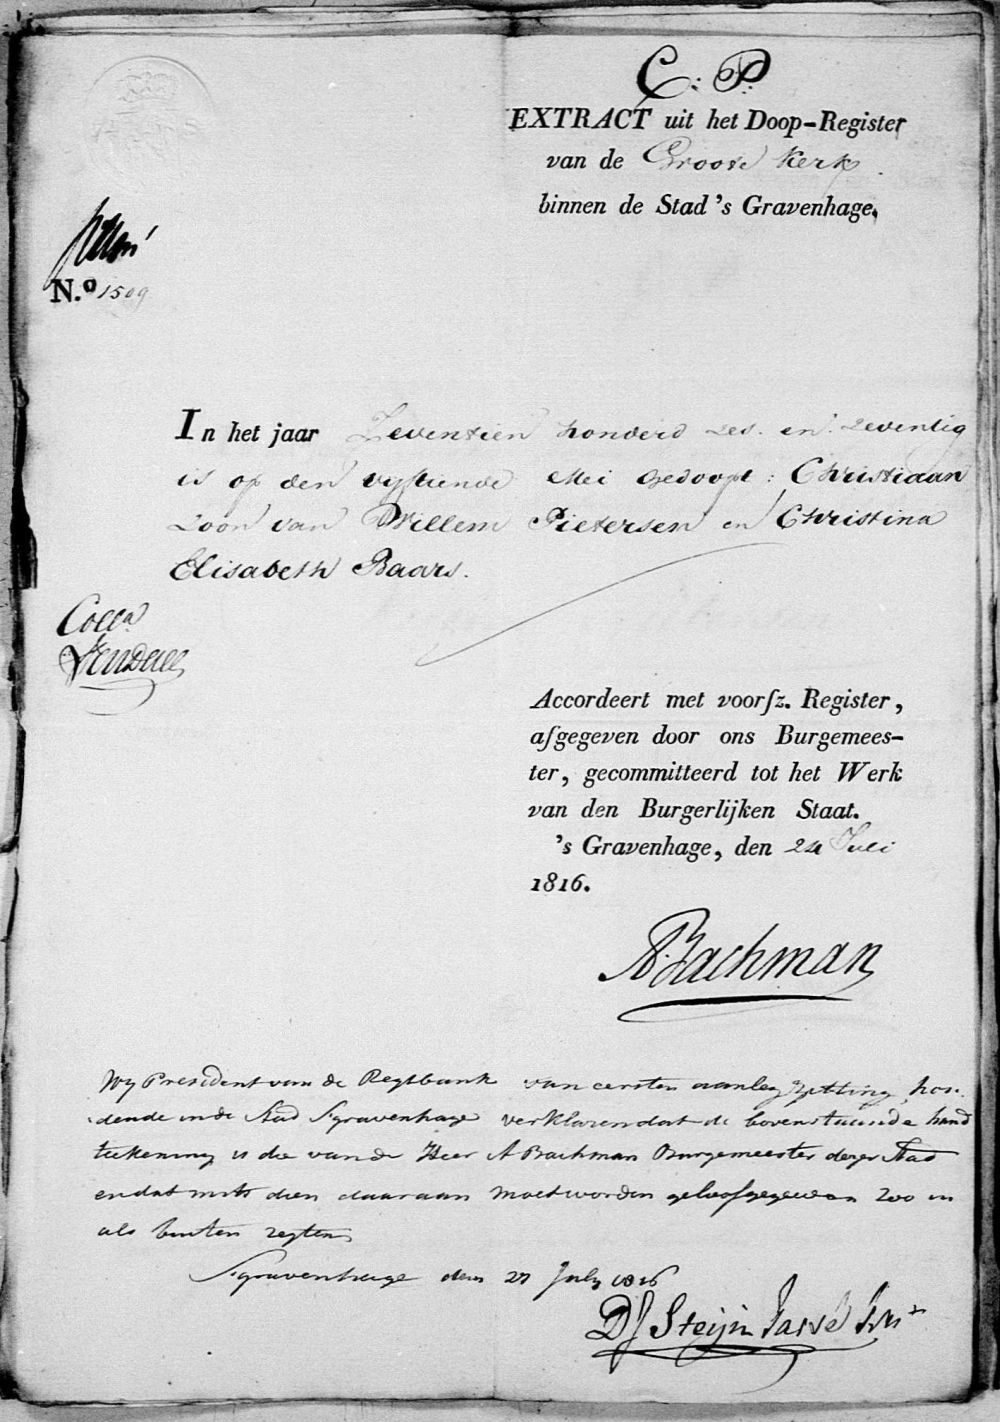 C: P:
EXTRACT uit het Doop-Register
van de Groote Kerk.
binnen de Stad 's Gravenhage.
N.o 1509
In het jaar Zeventien honderd zes. en. zeventig
is op den vyftiende Mei Gedoopt: Christiaan
Zoon van Willem Pietersen en Christina
Elisabeth Baars.
Coll.n
Accordeert met voorſz. Register,
afgegeven door ons Burgemees-
ter, gecommitteerd tot het Werk
van den Burgerlijken Staat.
's Gravenhage, den 24 Juli
1816.
A. Bachman
Wy President van de Regtbank van eersten aanleg zitting hou-
dende in de Stad Sgravenhage verklaren dat de bovenstaande hand
teekening is die van de Heer A Bachman Burgemeester dezer Stad
en dat mits dien daaraan moet worden geloof gegeven zoo in
als buiten regten
Sgravenhage den 27 July 1816
DJ Steijn Parvé